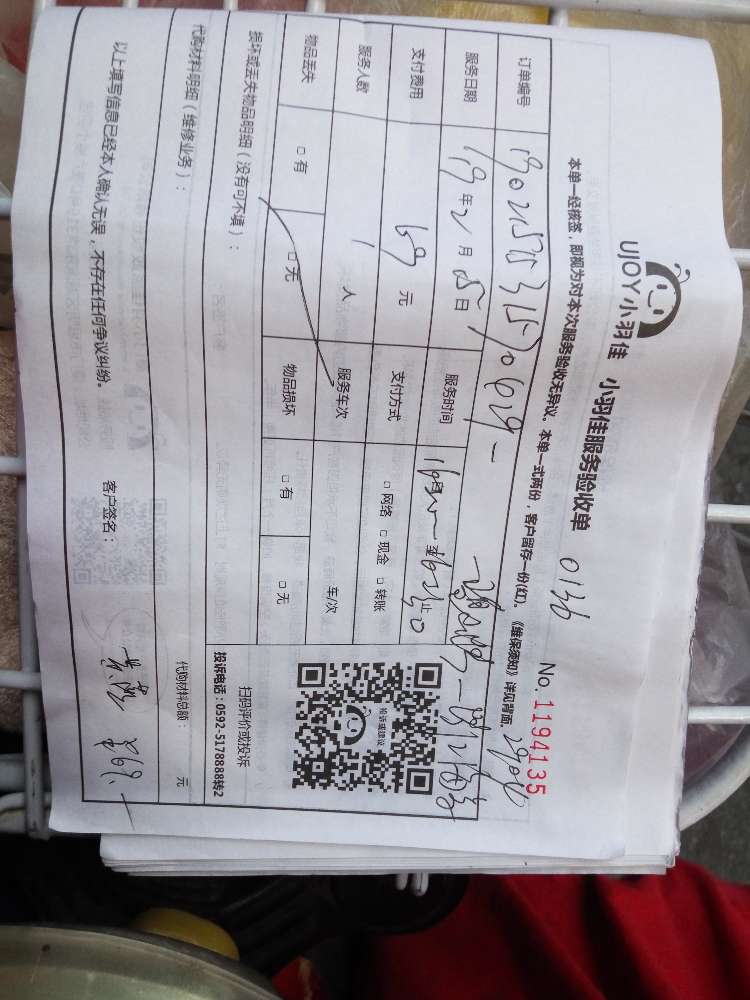 UJOY小羽佳 小羽佳服务验收单 0136
No. 1194135
本单一经核签，即视为对本次服务验收无异议。本单一式两份，客户留存一份(红)。《维保须知》详见背面。
订单编号
服务日期 19 年 2 月 15 日 服务时间
支付费用 69 元 支付方式 □ 网络 □ 现金 □ 转账
服务人数 1 人 服务车次 车/次
物品丢失 □ 有 □ 无 物品损坏 □ 有 □ 无
投诉或建议
扫码评价或投诉
投诉电话：0592-5178888转2
损坏或丢失物品明细（没有可不填）：
代购材料明细（维修业务）： 代购材料总额： 元
以上填写信息已经本人确认无误，不存在任何争议纠纷。 客户签名：